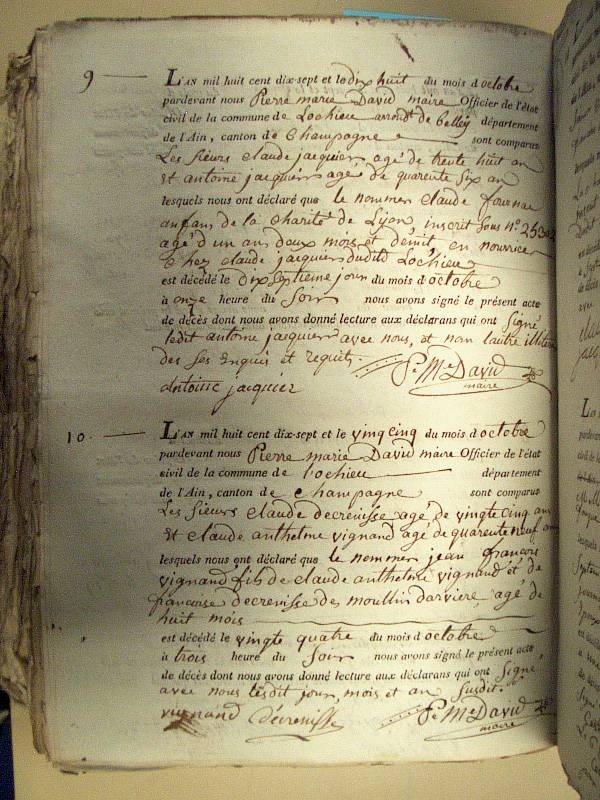 9 — L'AN mil huit cent dix-sept et le dix huit du mois d'octobre
pardevant nous Pierre marie David maire Officier de l'état
civil de la commune de Lochieu arrondt de belley département
de l'Ain, canton de Champagne sont comparus
Les sieurs claude jacquier agé de trente huit an
Et antoine jacquier agé de quarente six an
lesquels nous ont déclaré que le nommer claude fournae
anfan de la charité de Lyon, inscrit sous n°
agé d'un an deux mois et demit, en nourrice
chez claude jacquier dudit Lochieu
est décédé le dix septieme jour du mois d'octobre
à onze heure du soir nous avons signé le présent acte
de décès dont nous avons donné lecture aux déclarans qui ont signé
ledit antoine jacquier avec nous, et non lautre illiteré
des ses enquis et requis. Pe Me David
antoine jacquier maire
10. — L'AN mil huit cent dix-sept et le vingcinq du mois d'octobre
pardevant nous Pierre marie David maire Officier de l'état
civil de la commune de Lochieu département
de l'Ain, canton de Champagne sont comparus
Les sieurs claude decrenisse agé de vingte cinq ans
Et claude anthelme vignand agé de quarente neuf ans
lesquels nous ont déclaré que le nommer jean françois
vignand fils de claude anthelme vignand et de
françoise decrenisse des moullin darviere agé de
huit mois
est décédé le vingte quatre du mois d'octobre
à trois heure du soir nous avons signé le présent acte
de décès dont nous avons donné lecture aux déclarans qui ont signé
avec nous lesdit jour, mois et an susdit.
vuignand décrenisse Pe Me David
maire